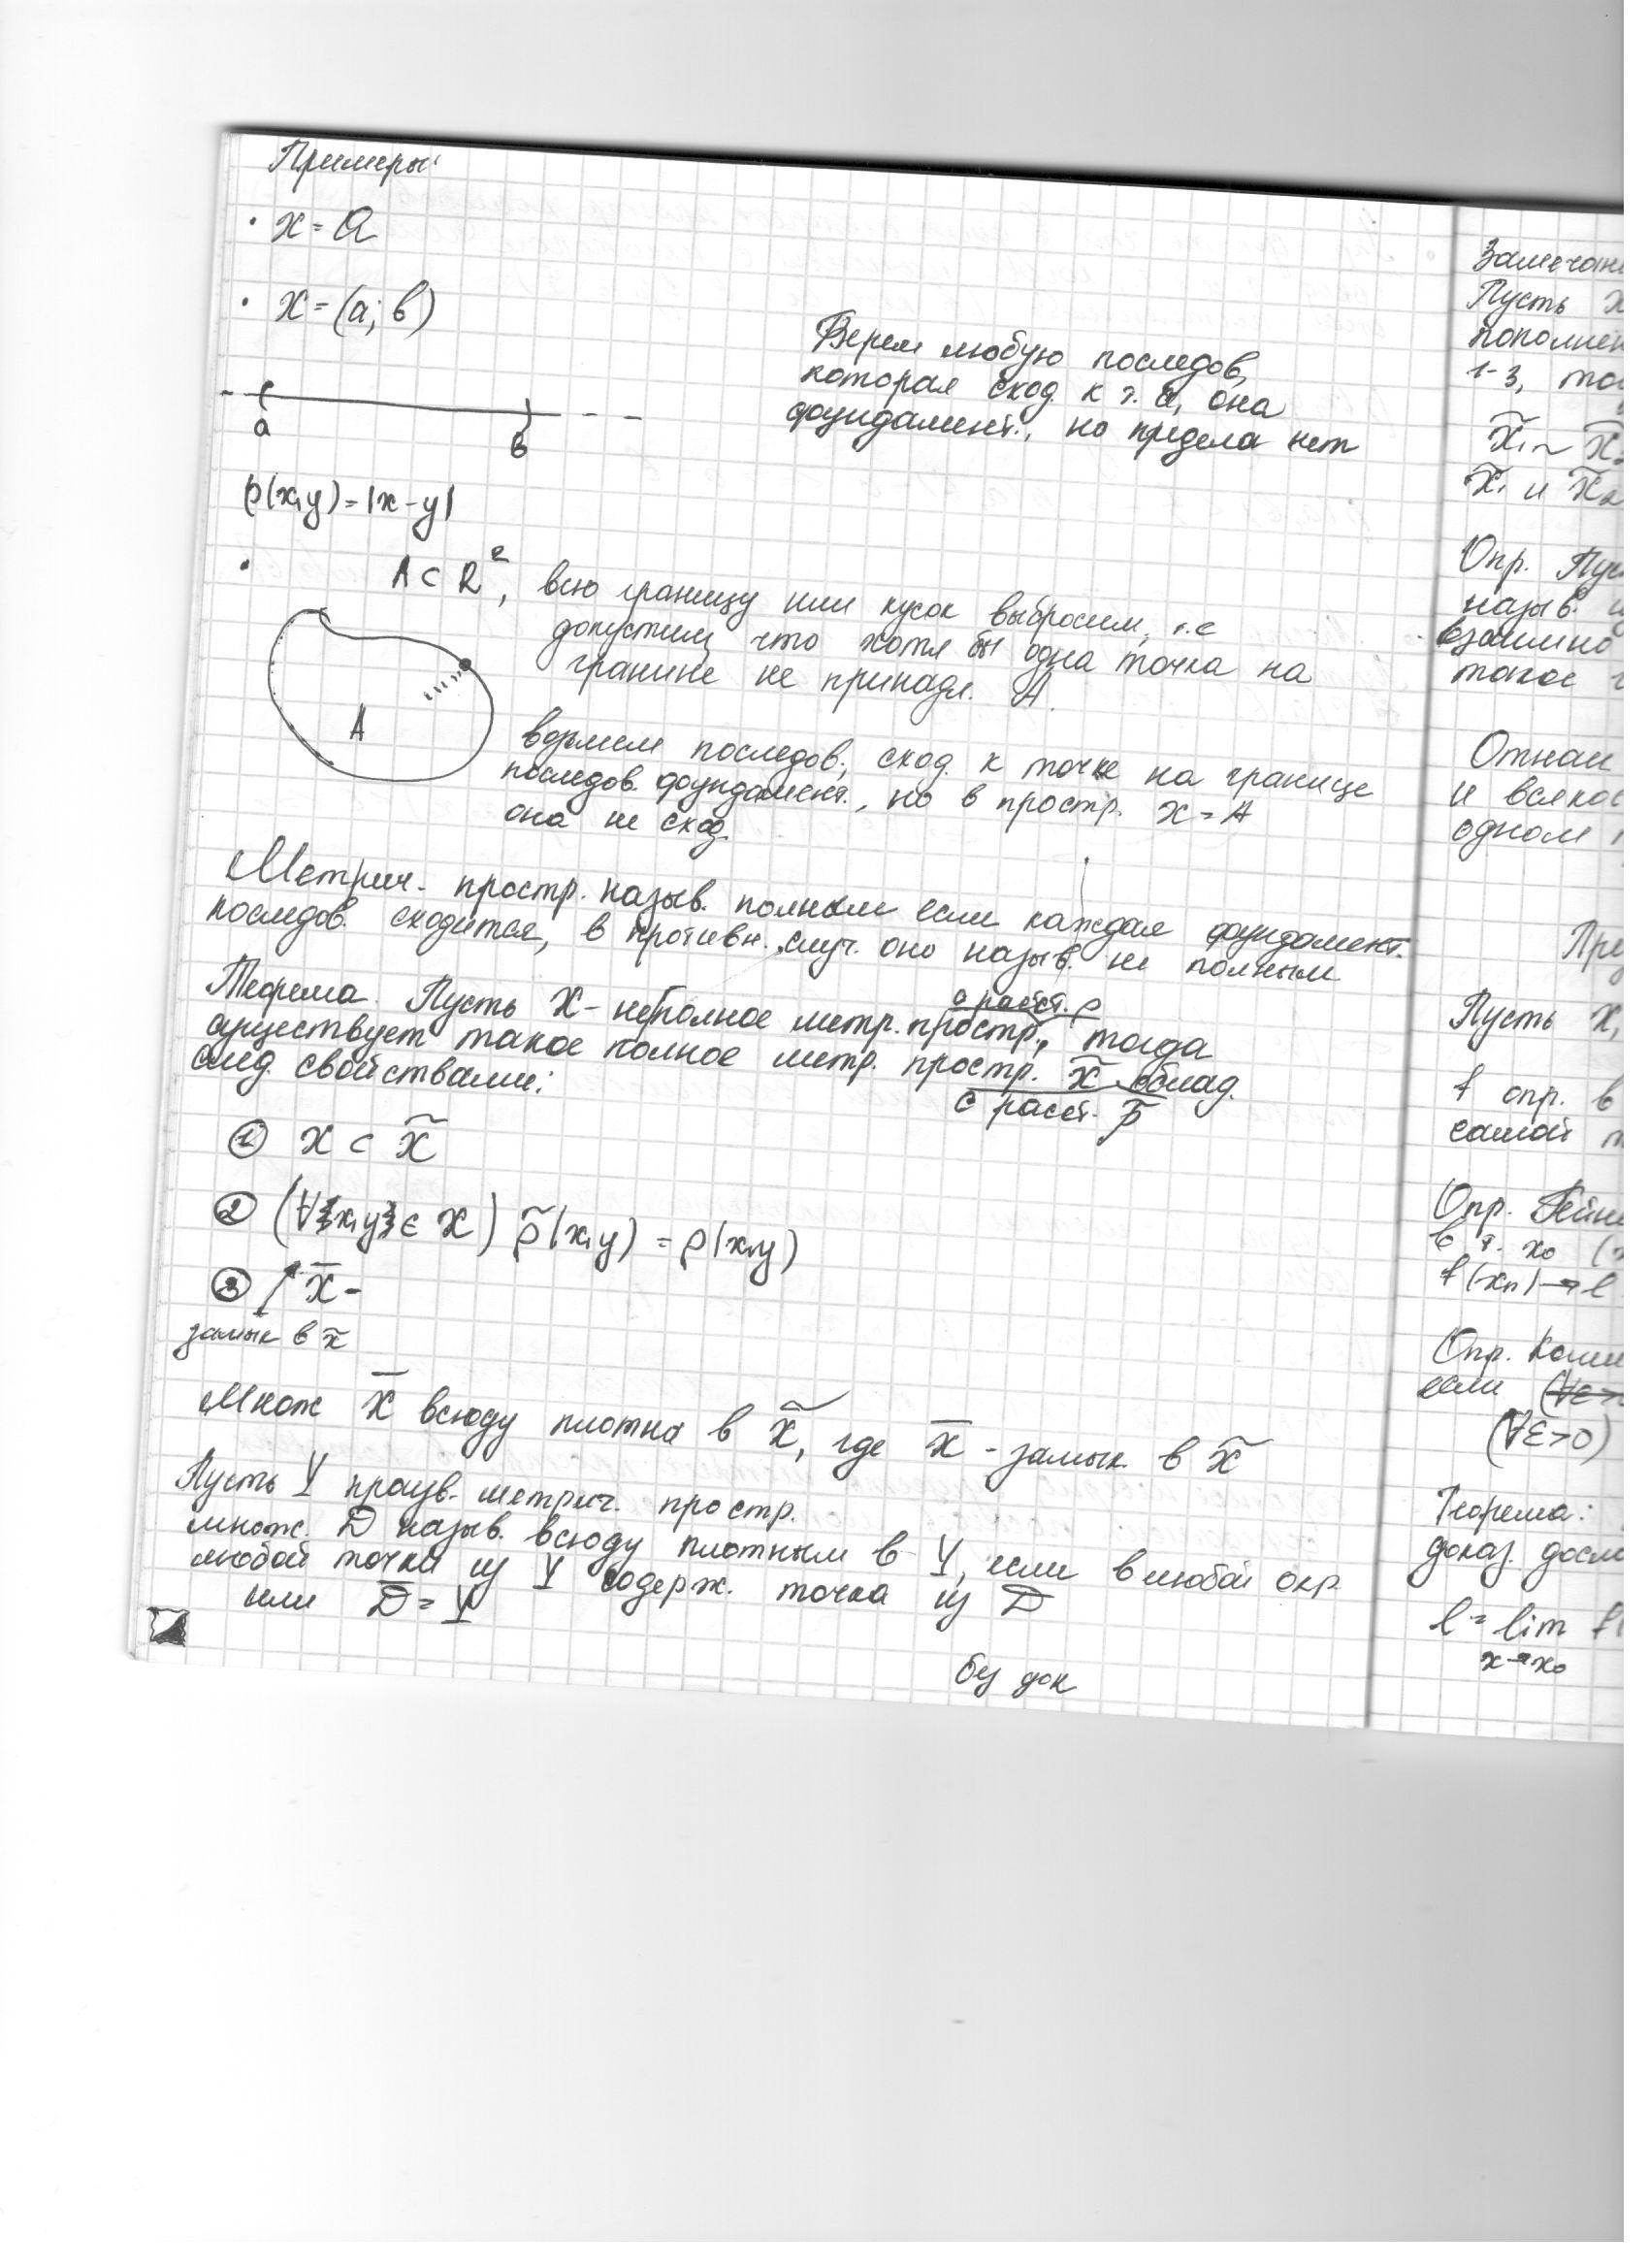 Примеры:
· X = Q
· X = (a; b)
a
b
Берем любую последов,
которая сход. к т. a, она
фундамент., но предела нет
ρ(x,y) = |x-y|
· A ⊂ R², всю границу или кусок выбросим, т.е
допустим, что хотя бы одна точка на
границе не принадл. A.
A
возьмем последов., сход. к точке на границе
последов. фундамент., но в простр. X = A
она не сход.
Метрич. простр. назыв. полным если каждая фундамент.
последов. сходится, в противн. случ. оно назыв. не полным
Теорема. Пусть X - неполное метр. простр., тогда
с расст. ρ
существует такое полное метр. простр. X̃ облад.
с расст. ρ̃
след. свойствами:
① X ⊂ X̃
② (∀ x,y ∈ X) ρ̃(x,y) = ρ(x,y)
③ X̅ -
замык в X̃
Множ X̅ всюду плотно в X̃, где X̅ - замык. в X̃
Пусть Y произв. метрич. простр.
множ. D назыв. всюду плотным в Y, если в любой окр
любой точки из Y содерж. точка из D
или D̅ = Y
без док
Пусть X
1-3,
X̃₁ ~ X̃
X̃₁ и X̃₂
Опр.
назыв.
взаимно
такое
и
одном
Пусть X,
f опр. в
самой
Опр.
в т. x₀
f(xₙ) → l
Опр.
если
(∀ε>0)
Теорема:
доказ.
l = lim f(
x→x₀